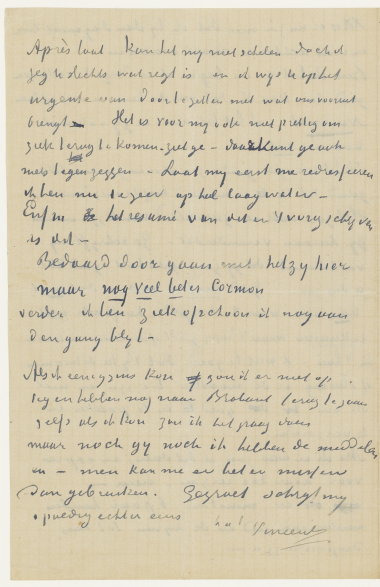 Après tout kan het my niet schelen doch ik
zeg U slechts wat regt is en ik wys U op het
urgente van door te zetten met wat ons vooruit
brengt – Het is voor my ook niet prettig om
ziek terug te komen ziet ge – daar kunt ge ook
niets tegen zeggen – Laat my eerst me redresseeren
ik ben nu te zeer op het laag water –
Enfin het resumé van dit en t vorig schryven
is dit –
Bedaard door gaan met hetzy hier
maar nog veel beter Cormon
verder ik ben ziek ofschoon ik nog aan
den gang blyf –
Als ik eenigzins kon zou ik er niet op
tegen hebben nog naar Braband terug te gaan
zelfs als ik kon zou ik het graag doen
maar noch gy noch ik hebben de middelen
en – men kan me er beter missen
dan gebruiken. Gegroet schryf my
spoedig echter eens
Vincent